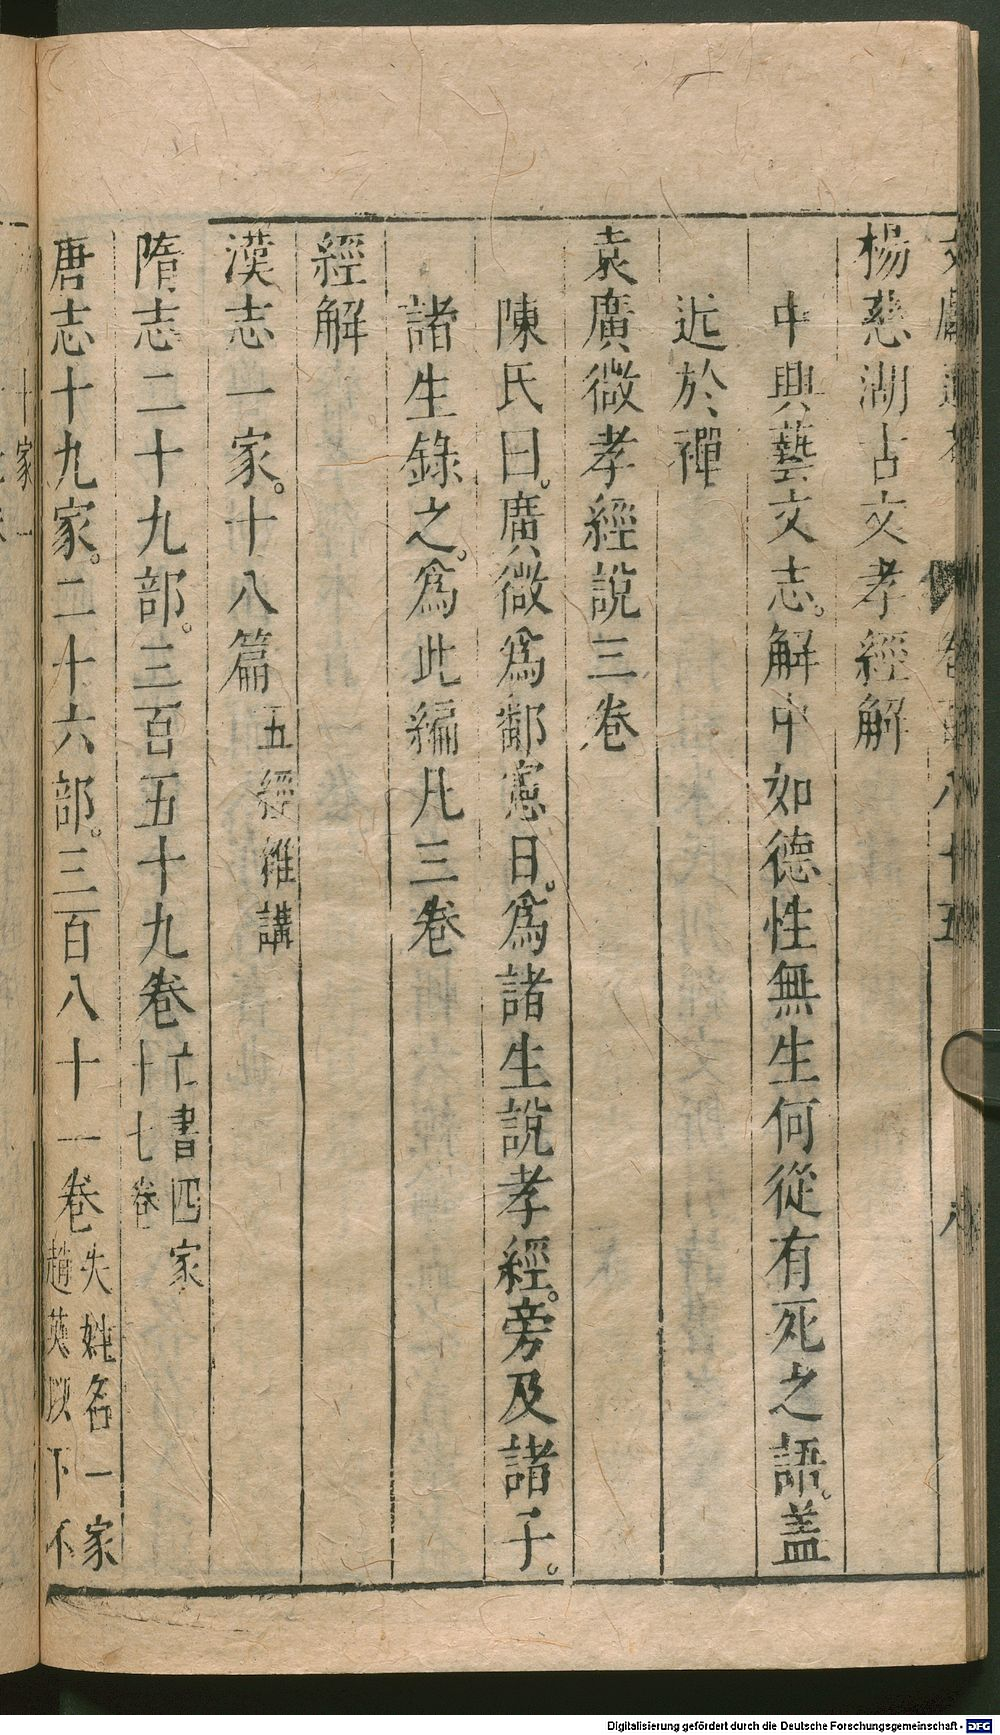 楊慈湖古文孝經解
中興藝文志。解中如德性無生何從有死之語。蓋
近於禪
袁廣微孝經說三卷
陳氏曰。廣微為鄱憲日。為諸生說孝經。旁及諸子。
諸生錄之。為此編凡三卷
經解
漢志一家。十八篇五經雜講
隋志二十九部。三百五十九卷亡書四家十七卷
唐志十九家。二十六部。三百八十一卷失姓名一家趙英以下不
Digitalisierung gefördert durch die Deutsche Forschungsgemeinschaft - DFG